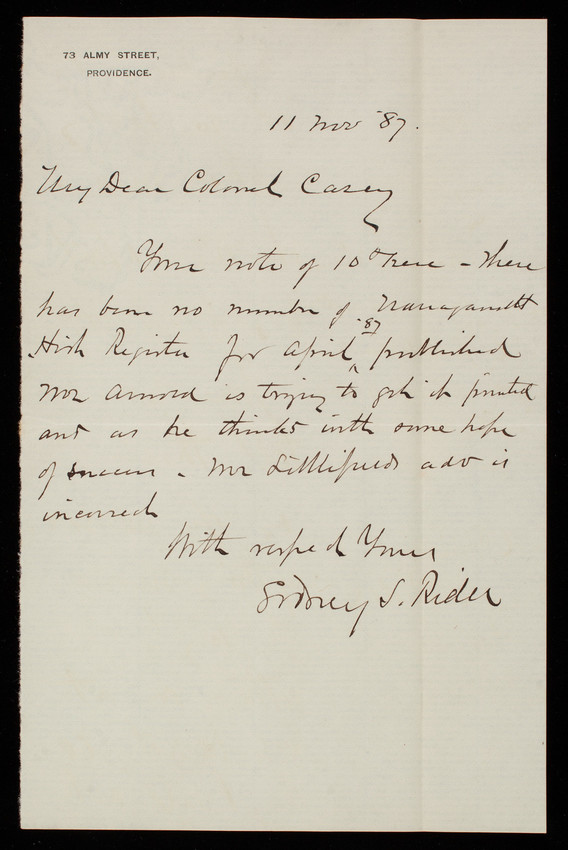 73 ALMY STREET,
PROVIDENCE.
11 Nov '87.
My Dear Colonel Casey
Your note of 10th here - There
has been no number of Narragansett
Hist Register for April '87 published
Mr Arnold is trying to get it printed
and as he thinks with some hope
of success - Mr Littlefields adv is
incorrect
With respect Yours
Sidney S. Rider